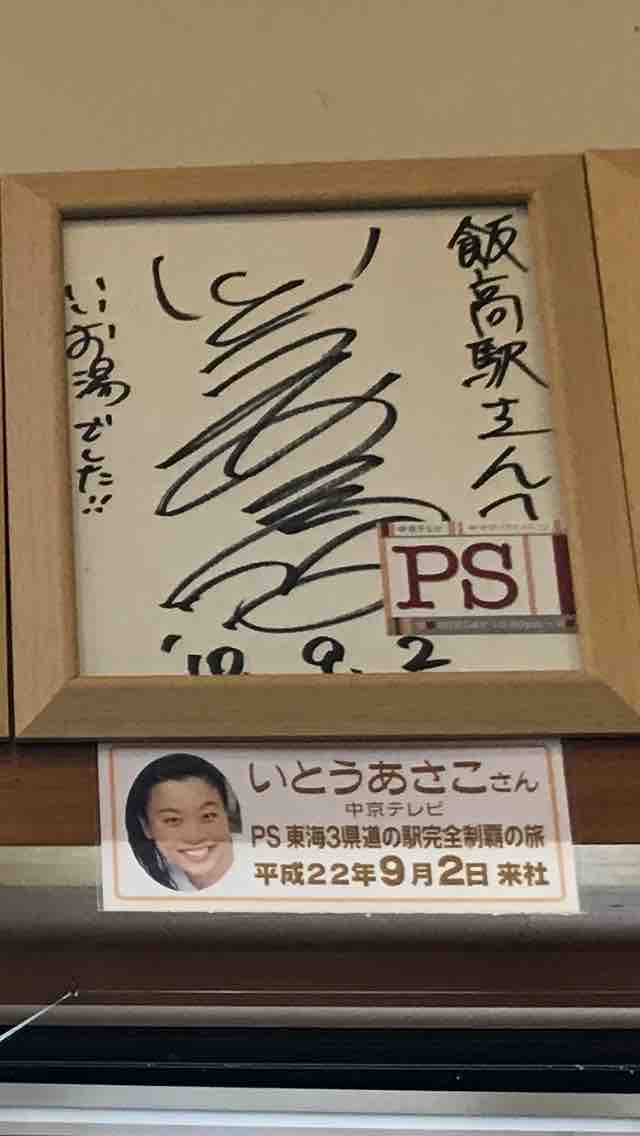 飯高駅さんへ
いいお湯でした!!
PS
'10. 9. 2
いとうあさこさん
中京テレビ
PS 東海3県道の駅完全制覇の旅
平成22年9月2日 来社